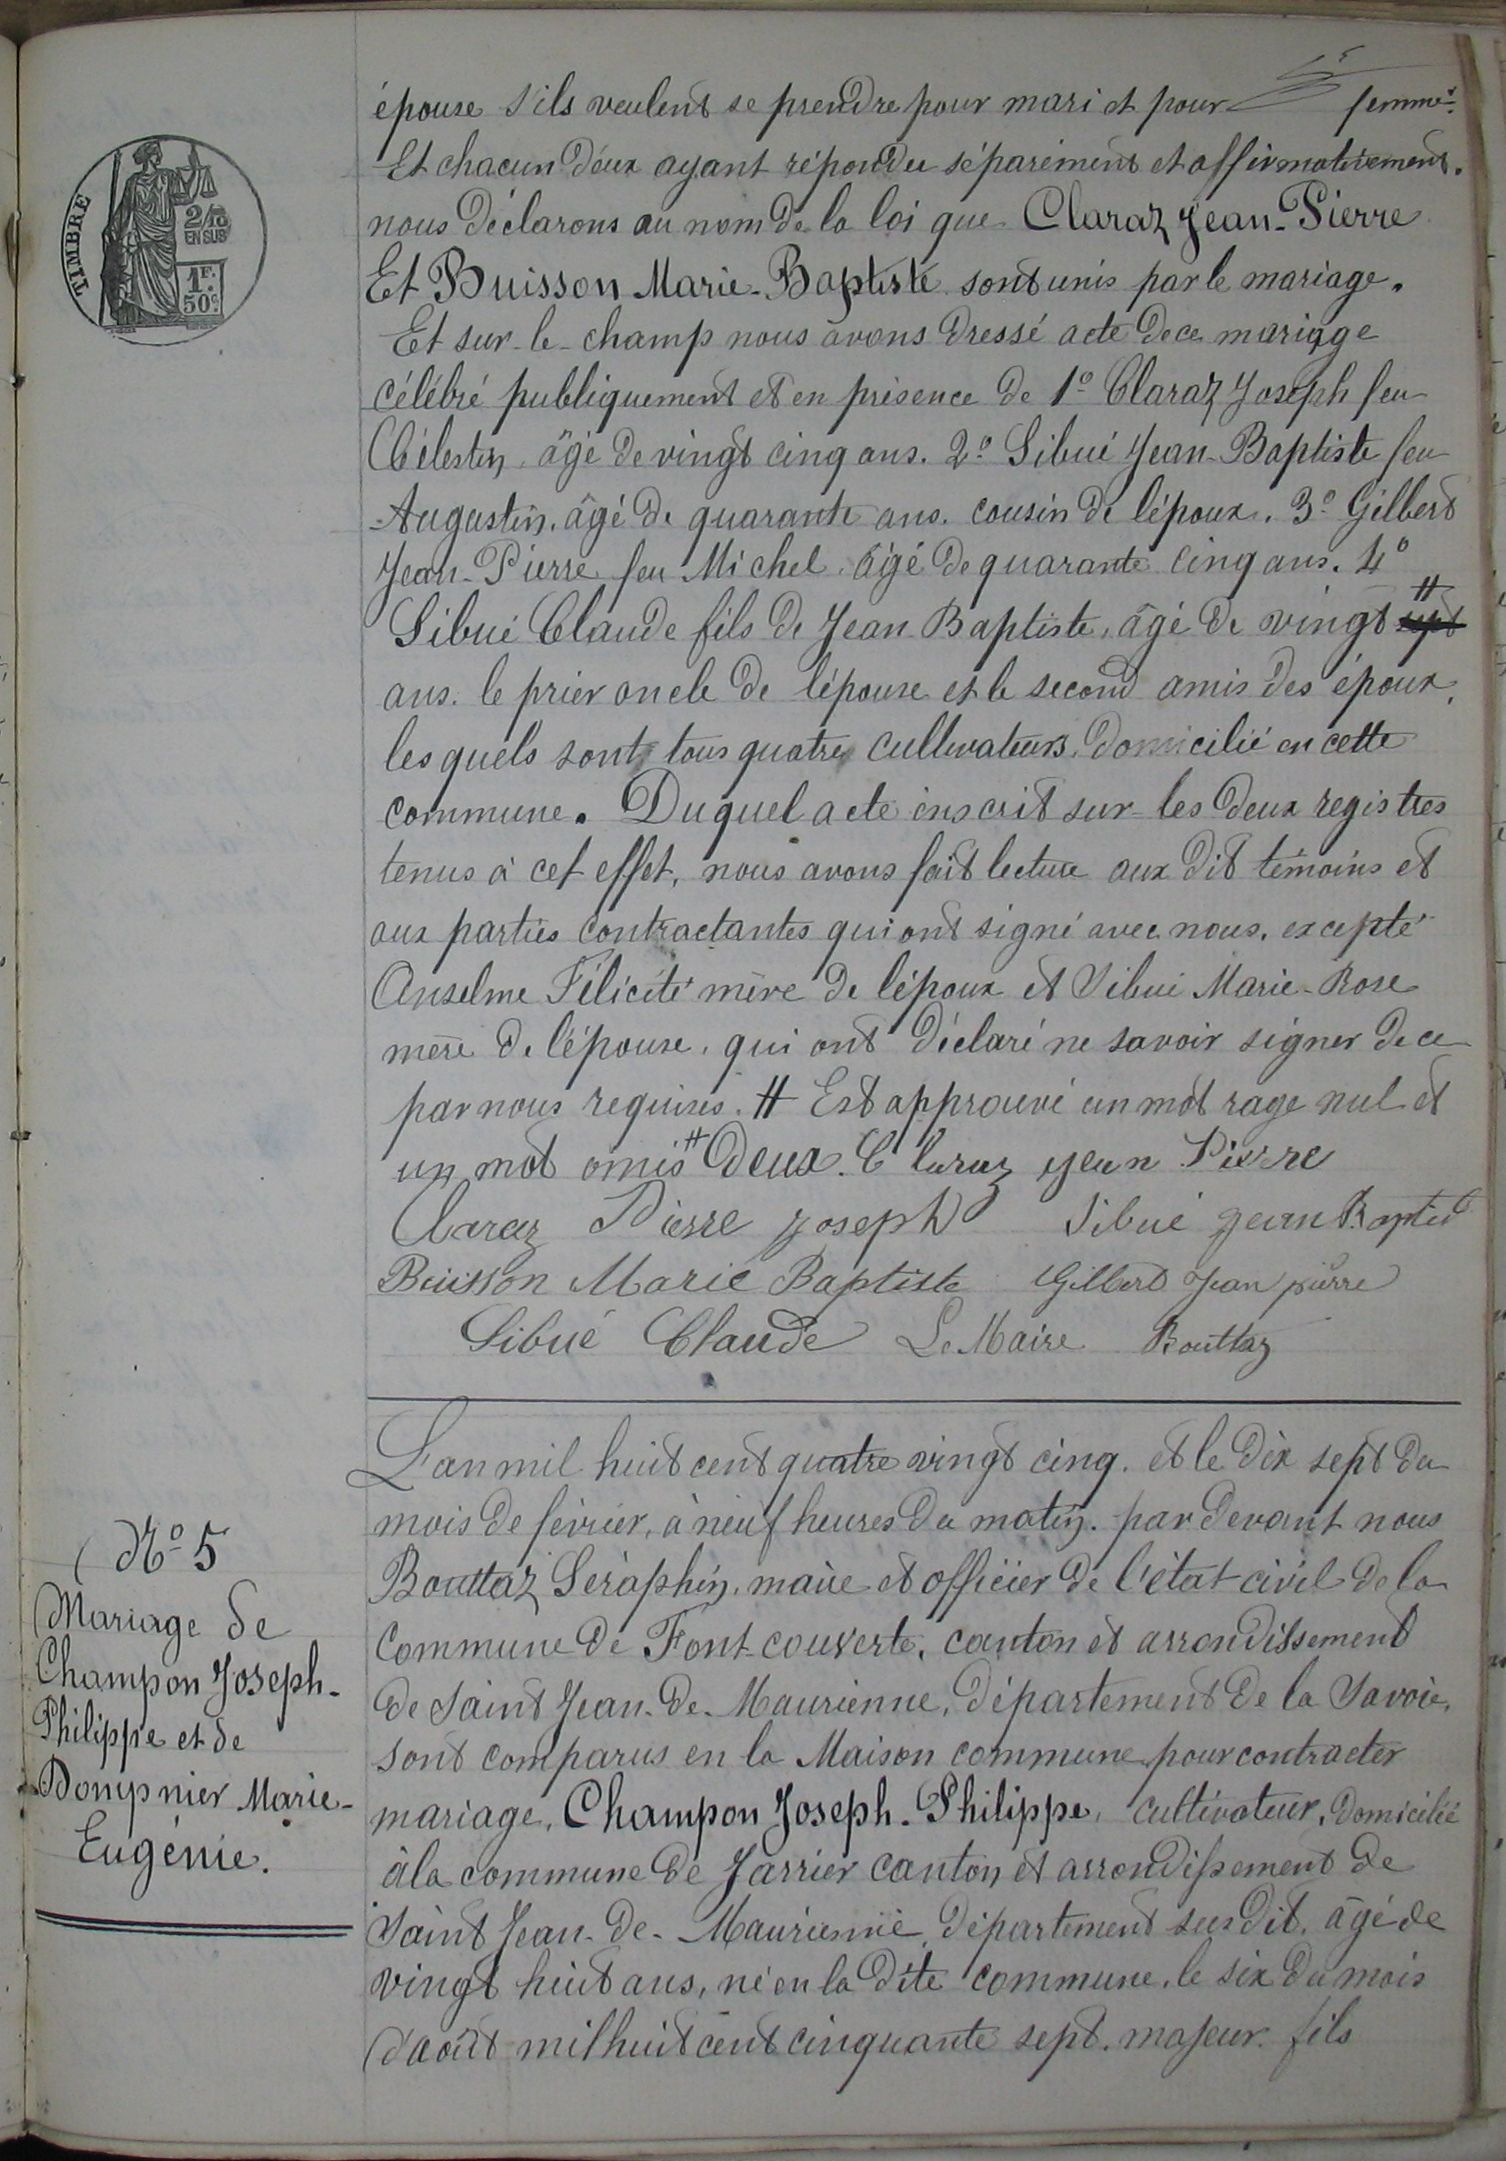 TIMBRE
2/10
EN SUS
1F.
50c.
épouse s'ils veulent se prendre pour mari et pour femme.
Et chacun d'eux ayant répondu séparément et affirmativement.
nous déclarons au nom de la loi que Claraz Jean-Pierre
Et Buisson Marie-Baptiste sont unis par le mariage.
Et sur-le-champ nous avons dressé acte de ce mariage
célébré publiquement et en présence de 1º Claraz Joseph feu
Célestin, âgé de vingt cinq ans. 2º Sibué Jean-Baptiste feu
Augustin, âgé de quarante ans. cousin de l'époux. 3º Gilbert
Jean-Pierre feu Michel âgé de quarante cinq ans. 4º
Sibué Claude fils de Jean Baptiste, âgé de vingt # sept
ans. le prier oncle de l'épouse et le second amis des époux,
lesquels sont tous quatre cultivateurs, domicilié en cette
commune. Duquel acte inscrit sur les deux registres
tenus à cet effet, nous avons fait lecture aux dit témoins et
aux parties contractantes qui ont signé avec nous, excepté
Anselme Félicité mère de l'époux et Sibué Marie-Rose
mère de l'épouse, qui ont déclaré ne savoir signer de ce
par nous requises. # Est approuvé un mot rage nul et
un mot omis # deux. Claraz jean Pierre
Claraz Pierre joseph Sibué jean Baptist
Buisson Marie Baptiste Gilbert Jean pierre
Sibué Claude Le Maire Bouttaz
Nº 5
Mariage de
Champon Joseph-
Philippe et de
Dompnier Marie-
Eugénie.
L'an mil huit cent quatre vingt cinq. et le dix sept du
mois de février, à neuf heures du matin. par devant nous
Bouttaz Séraphin, maire et officier de l'état civil de la
commune de Font-couverte, canton et arrondissement
de Saint Jean-de-Maurienne, département de la Savoie,
sont comparus en la Maison commune pour contracter
mariage, Champon Joseph-Philippe, cultivateur, domicilié
à la commune de Jarrier canton et arrondissement de
Saint Jean-de-Maurienne, département sus dit, âgé de
vingt huit ans, né en la dite commune, le six du mois
d'août mil huit cent cinquante sept. majeur. fils